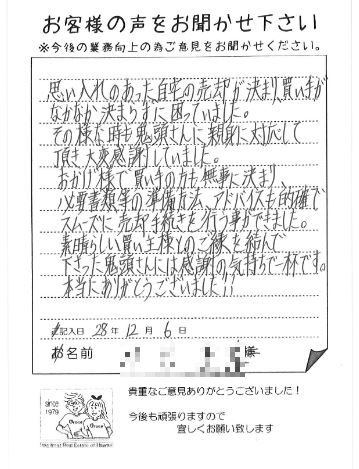 お客様の声をお聞かせ下さい
※今後の業務向上の為ご意見をお聞かせください。
思い入れのあった自宅の売却が決まり、買い手が
なかなか決まらずに困っていました。
その様な時も鬼頭さんに親身に対応して
頂き大変感謝していました。
おかげ様で買い手の方も無事に決まり
必要書類等の準備方法、アドバイスも的確で
スムーズに売却手続きを行う事ができました。
素晴らしい買い主様とのご縁を結んで
下さった鬼頭さんには感謝の気持ちで一杯です。
本当にありがとうございました!!
ご記入日 28年 12月 6日
お名前 様
since
1979
貴重なご意見ありがとうございました！
今後も頑張りますので
宜しくお願い致します